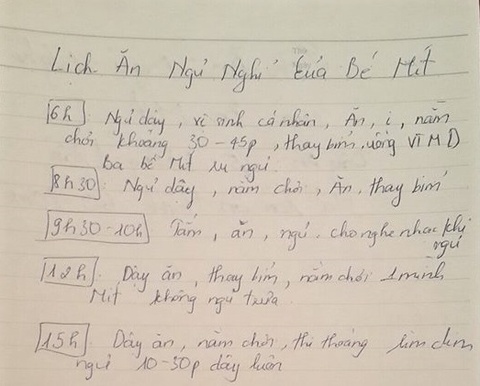 Lịch Ăn Ngủ Nghỉ Của Bé Mít
6h Ngủ dậy, vệ sinh cá nhân, Ăn, ị, nằm
chơi khoảng 30-45p, thay bỉm, uống VTM D
Ba bế Mít ru ngủ
8h30: Ngủ dậy, nằm chơi, Ăn, thay bỉm
9h30-10h Tắm, ăn, ngủ. cho nghe nhạc khi
ngủ
12h: Dậy ăn, thay bỉm, nằm chơi 1 mình
Mít không ngủ trưa
15h: Dậy ăn, nằm chơi, thi thoảng lim dim
ngủ 10-30p dậy luôn